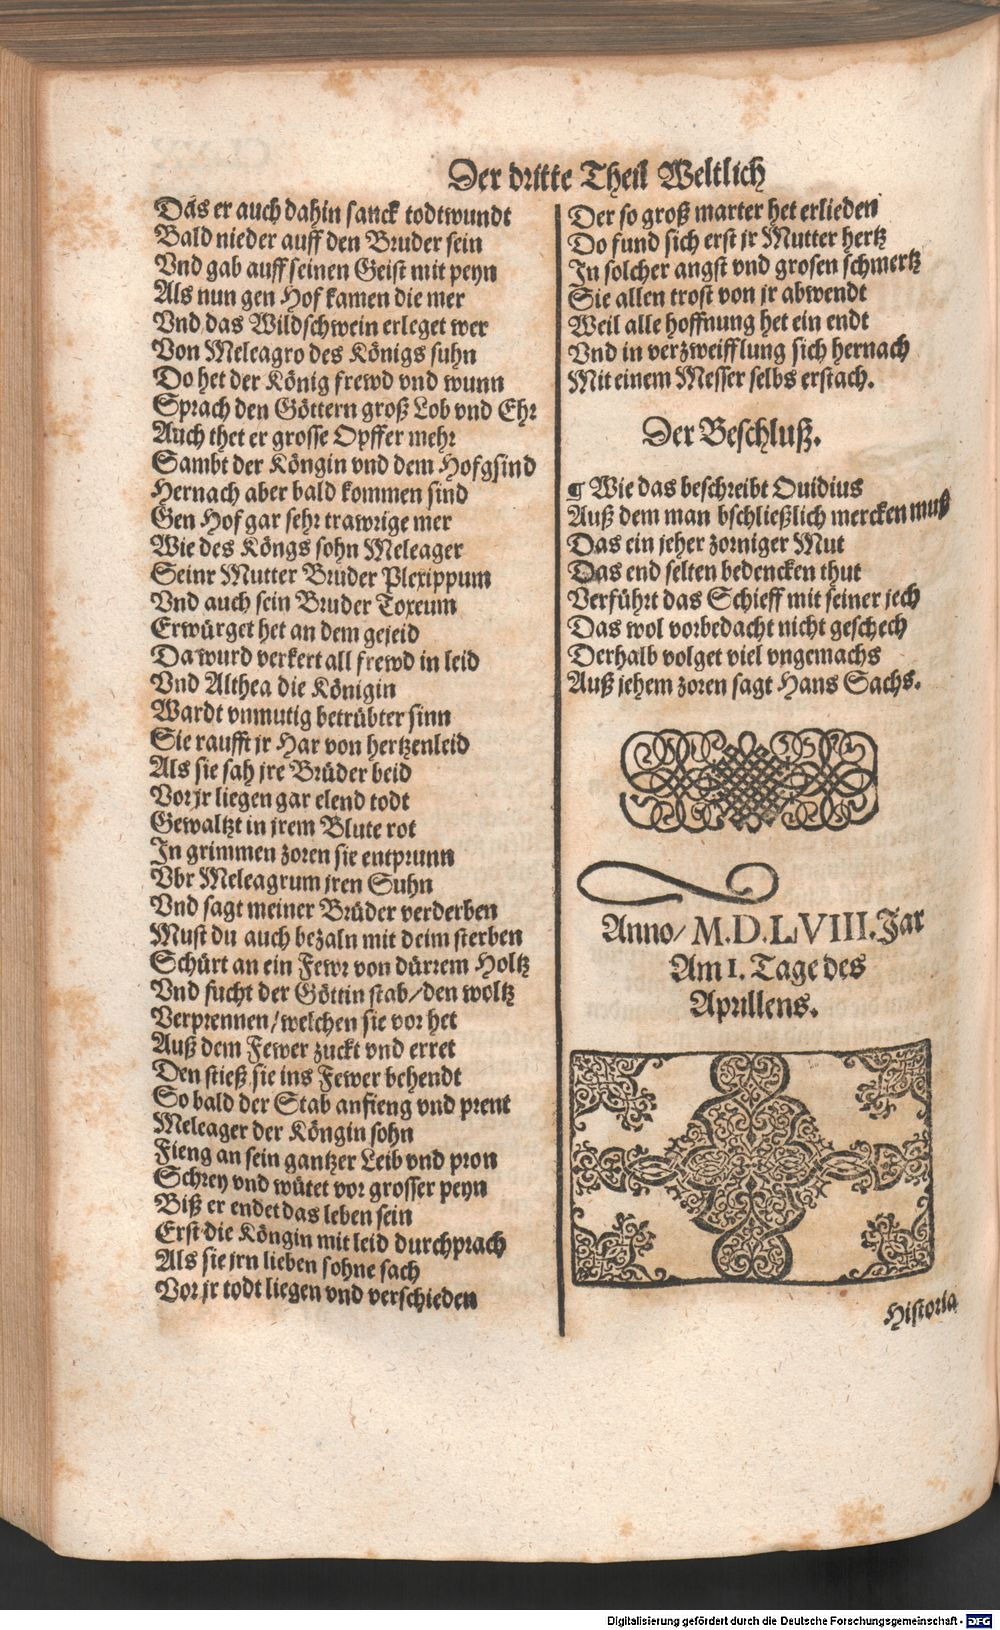 Der dritte Theil Weltlich
Das er auch dahin sanck todtwundt
Bald nieder auff den Bruder sein
Vnd gab auff seinen Geist mit peyn
Als nun gen Hof kamen die mer
Vnd das Wildschwein erleget wer
Von Meleagro des Königs suhn
Do het der König frewd vnd wunn
Sprach den Göttern groß Lob vnd Ehr
Auch thet er grosse Opffer mehr
Sambt der Köngin vnd dem Hofgsind
Hernach aber bald kommen sind
Gen Hof gar sehr trawrige mer
Wie des Köngs sohn Meleager
Seinr Mutter Bruder Plexippum
Vnd auch sein Bruder Toxeum
Erwürget het an dem gejeid
Da wurd verkert all frewd in leid
Vnd Althea die Königin
Wardt vnmutig betrübter sinn
Sie raufft jr Har von hertzenleid
Als sie sah jre Brüder beid
Vor jr liegen gar elend todt
Gewaltzt in jrem Blute rot
In grimmen zoren sie entprunn
Vbr Meleagrum jren Suhn
Vnd sagt meiner Brüder verderben
Must du auch bezaln mit deim sterben
Schürt an ein Fewr von dürrem Holtz
Vnd sucht der Göttin stab/den woltz
Verprennen/welchen sie vor het
Auß dem Fewer zuckt vnd erret
Den stieß sie ins Fewer behendt
So bald der Stab anfieng vnd prent
Meleager der Köngin sohn
Fieng an sein gantzer Leib vnd pron
Schrey vnd wütet vor grosser peyn
Biß er endet das leben sein
Erst die Köngin mit leid durchprach
Als sie jrn lieben sohne sach
Vor jr todt liegen vnd verschieden
Der so groß marter het erlieden
Do fund sich erst jr Mutter hertz
In solcher angst vnd grosen schmertz
Sie allen trost von jr abwendt
Weil alle hoffnung het ein endt
Vnd in verzweifflung sich hernach
Mit einem Messer selbs erstach.
Der Beschluß.
¶ Wie das beschreibt Ouidius
Auß dem man bschließlich mercken muß
Das ein jeher zorniger Mut
Das end selten bedencken thut
Verführt das Schieff mit seiner jech
Das wol vorbedacht nicht geschech
Derhalb volget viel vngemachs
Auß jehem zoren sagt Hans Sachs.
Anno/ M.D.LVIII. Jar
Am 1. Tage des
Aprillens.
Historia
Digitalisierung gefördert durch die Deutsche Forschungsgemeinschaft - DFG